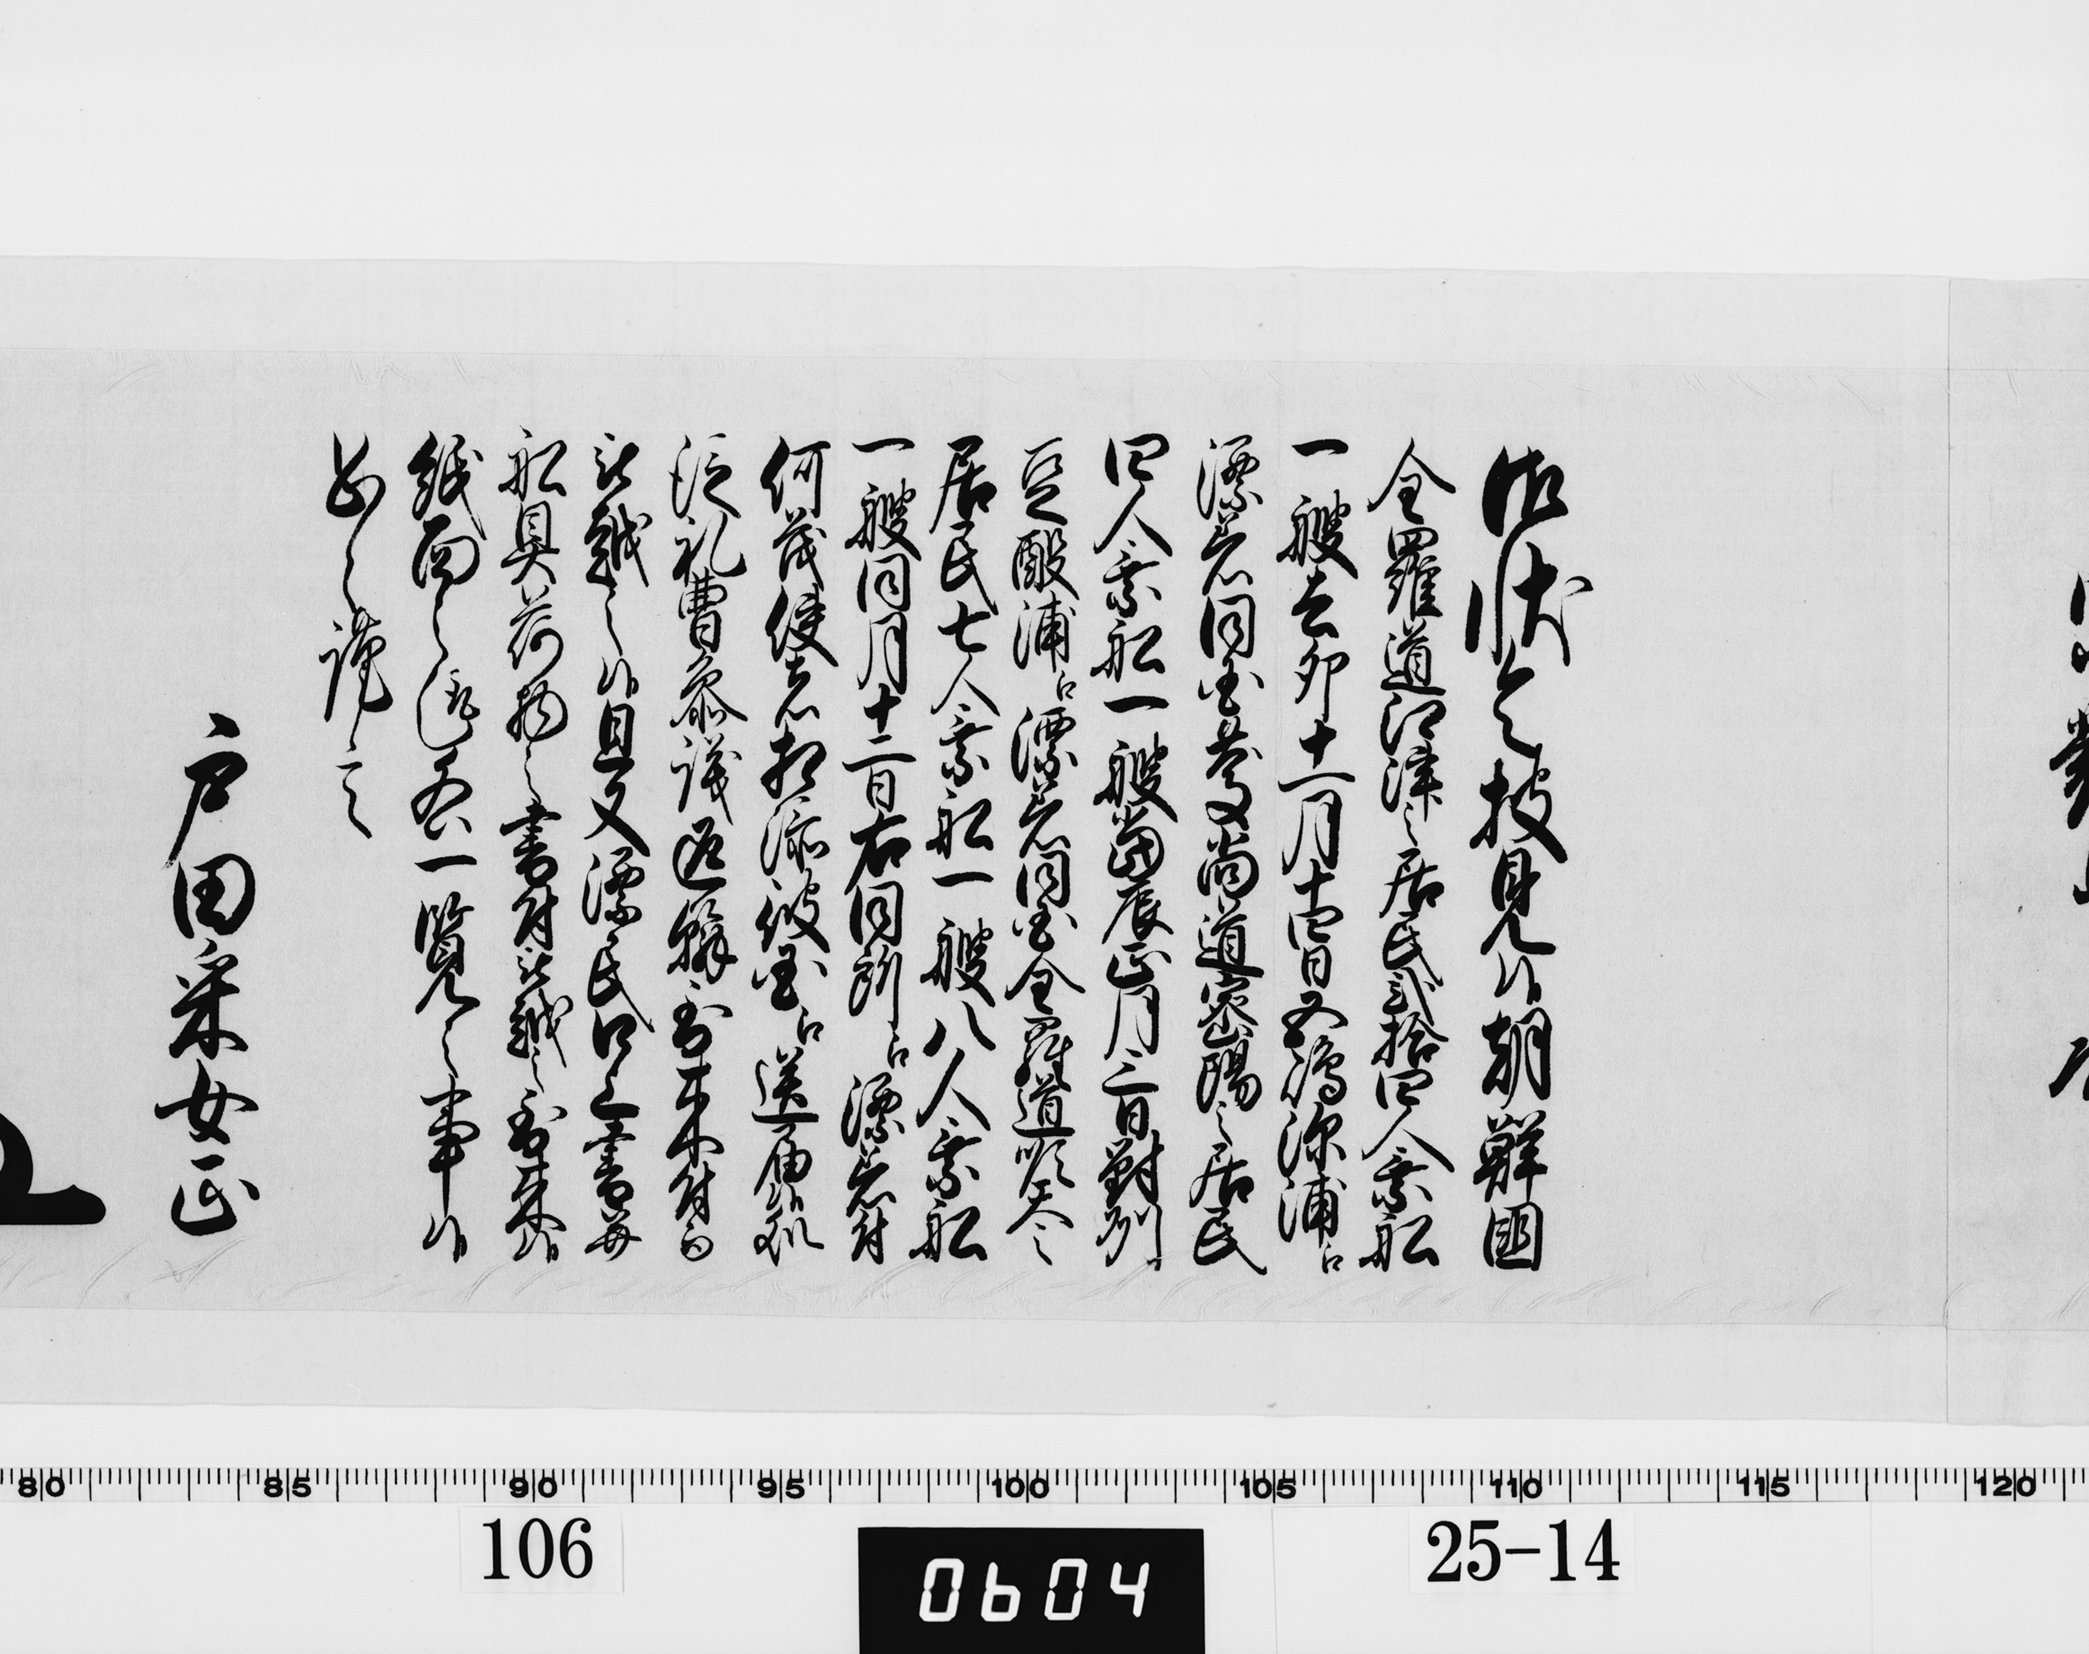 御状令披見候朝鮮国
全羅道江津之居民弐拾四人乗船
一艘去卯十一月十四日五嶋深浦江
漂着同国慶尚道密陽之居民
四人乗船一艘当辰正月三日対州
豆酘浦江漂着同国全羅道順天之
居民七人乗船一艘八人乗船
一艘同月十二日右同所江漂着付
何茂使者相添彼国江送届候
従礼曹参議返翰到来付而
被越之候且又漂民口上書并
船具荷物之書付被越之到来候
紙面之趣各一覧之事候
恐々謹言
戸田采女正
106
0604
25-14
80 85 90 95 100 105 110 115 120